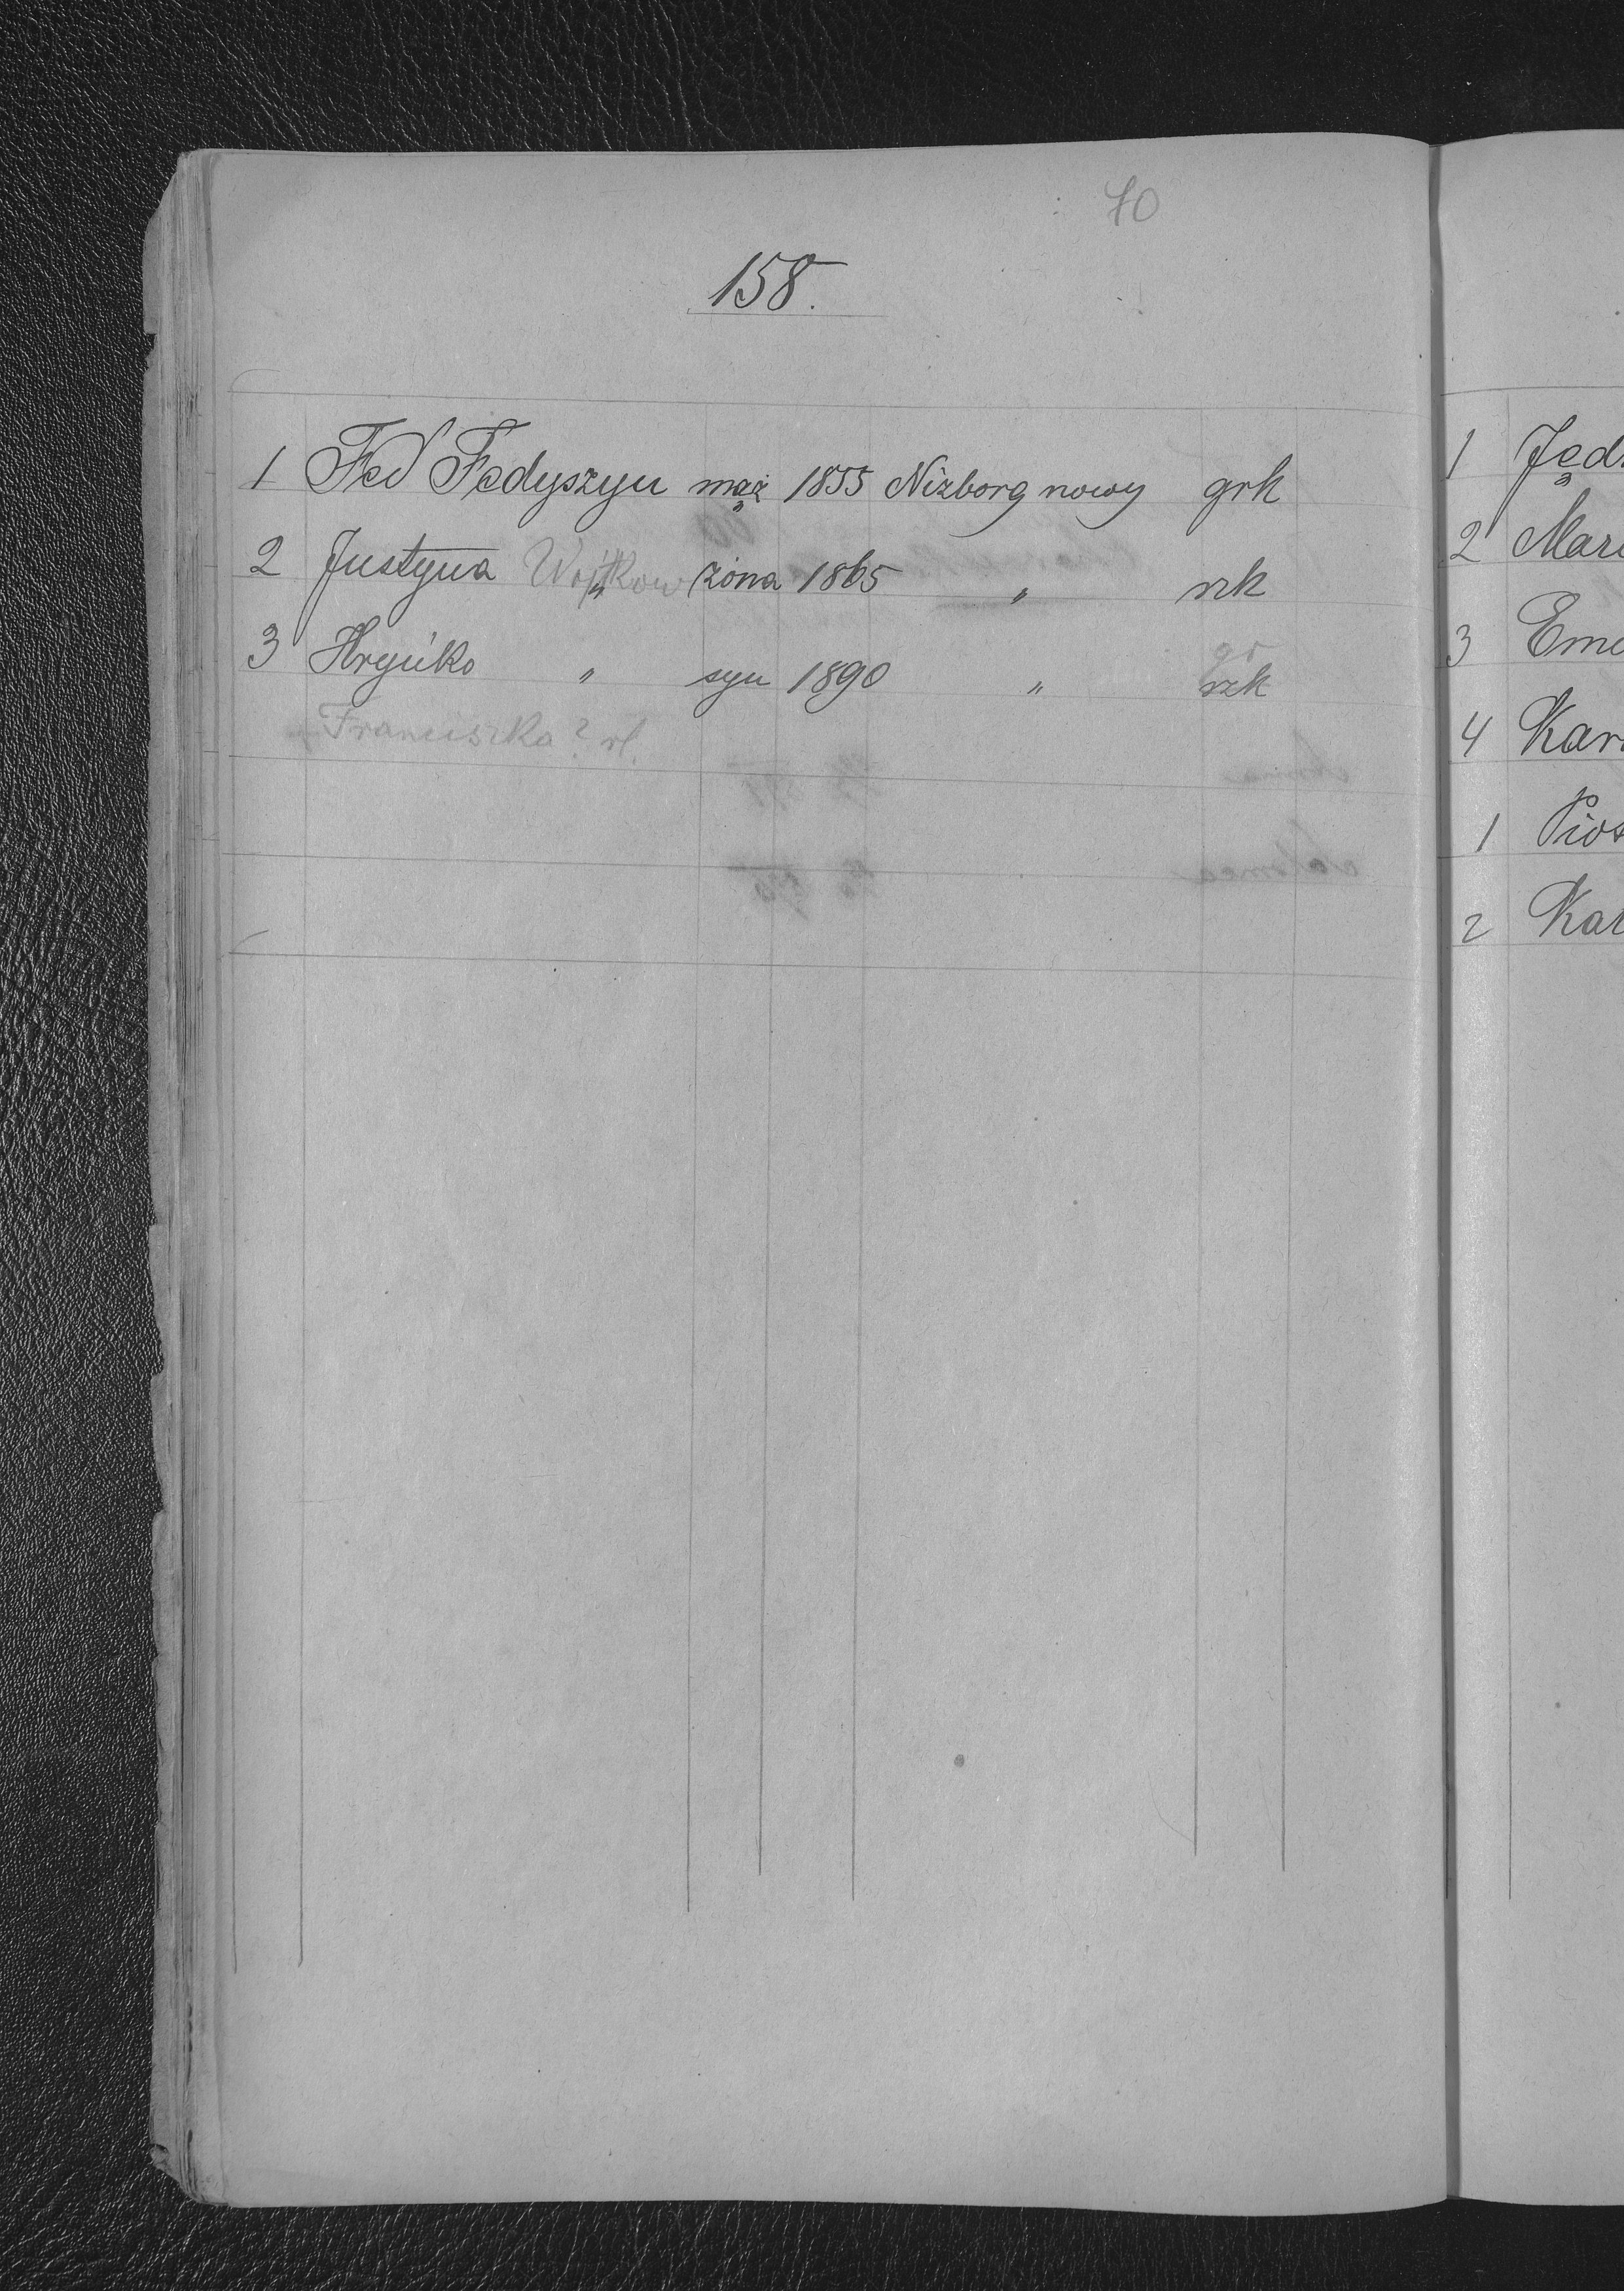 70
158.
1 Fed Fedyszyn mąż 1855 Niżborg nowy grk
2 Justyna Wójtkow żona 1865 " rzk
gr
3 Hryńko " syn 1890 " rzk
Franciszka ? rl.
1 Jędr
2 Mary
3 Eme
4 Kar
1 Piot
2 Kar